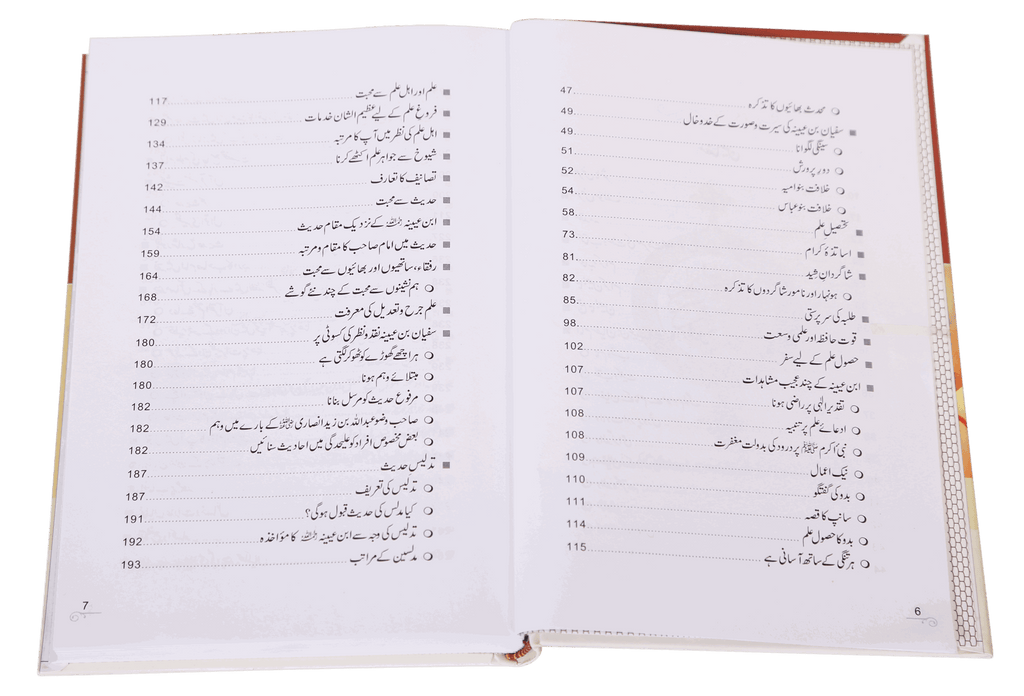 ○ محدث بھائیوں کا تذکرہ 47
■ سفیان بن عیینہ کی سیرت و صورت کے خدوخال 49
○ سینگی لگوانا 49
○ دور پرورش 51
○ خلافت بنو امیہ 52
○ خلافت بنو عباس 54
■ تحصیل علم 58
■ اساتذۂ کرام 73
■ شاگردانِ رشید 81
○ ہونہار اور نامور شاگردوں کا تذکرہ 82
■ طلبہ کی سرپرستی 85
■ قوت حافظہ اور علمی وسعت 98
■ حصول علم کے لیے سفر 102
■ ابن عیینہ کے چند عجیب مشاہدات 107
○ تقدیر الٰہی پر راضی ہونا 107
○ ادعائے علم پر تنبیہ 108
○ نبی اکرم ﷺ پر درود کی بدولت مغفرت 108
○ نیک اعمال 109
○ بدو کی گفتگو 110
○ سانپ کا قصہ 111
○ بدو کا حصول علم 114
○ ہر تنگی کے ساتھ آسانی ہے 115
6
■ علم اور اہل علم سے محبت 117
■ فروغ علم کے لیے عظیم الشان خدمات 129
■ اہل علم کی نظر میں آپ کا مرتبہ 134
■ شیوخ سے جواہر علم اکٹھے کرنا 137
■ تصانیف کا تعارف 142
■ حدیث سے محبت 144
■ ابن عیینہ رحمہ اللہ کے نزدیک مقام حدیث 154
■ حدیث میں امام صاحب کا مقام و مرتبہ 159
■ رفقاء، ساتھیوں اور بھائیوں سے محبت 164
○ ہم نشینوں سے محبت کے چند نئے گوشے 168
■ علم جرح و تعدیل کی معرفت 172
■ سفیان بن عیینہ نقد و نظر کی کسوٹی پر 180
○ ہر اچھے گھوڑے کو ٹھوکر لگتی ہے 180
○ مبتلائے وہم ہونا 180
○ مرفوع حدیث کو مرسل بنانا 182
○ صاحب وضو عبداللہ بن زید انصاری کے بارے میں وہم 182
○ بعض مخصوص افراد کو علیحدگی میں احادیث سنائیں 182
■ تدلیس حدیث 187
○ تدلیس کی تعریف 187
○ کیا مدلس کی حدیث قبول ہوگی؟ 191
○ تدلیس کی وجہ سے ابن عیینہ رحمہ اللہ کا مؤاخذہ 192
○ مدلسین کے مراتب 193
7